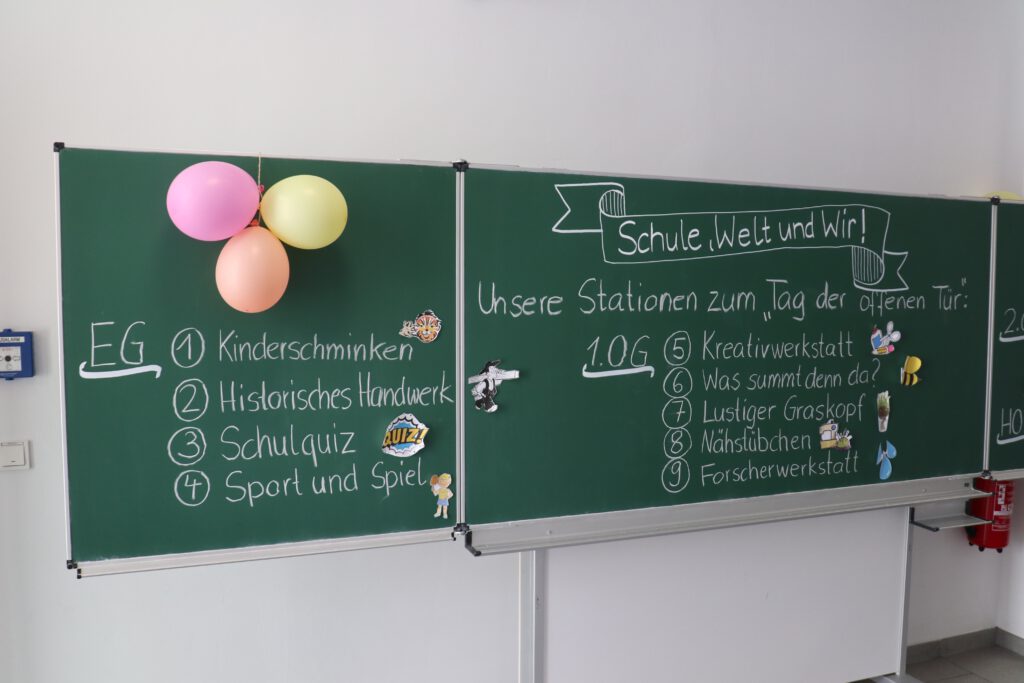 Schule, Welt und Wir!
Unsere Stationen zum „Tag der offenen Tür“:
EG
① Kinderschminken
② Historisches Handwerk
③ Schulquiz
QUIZ!
④ Sport und Spiel
1.OG
⑤ Kreativwerkstatt
⑥ Was summt denn da?
⑦ Lustiger Graskopf
⑧ Nähstübchen
⑨ Forscherwerkstatt
2.
HO